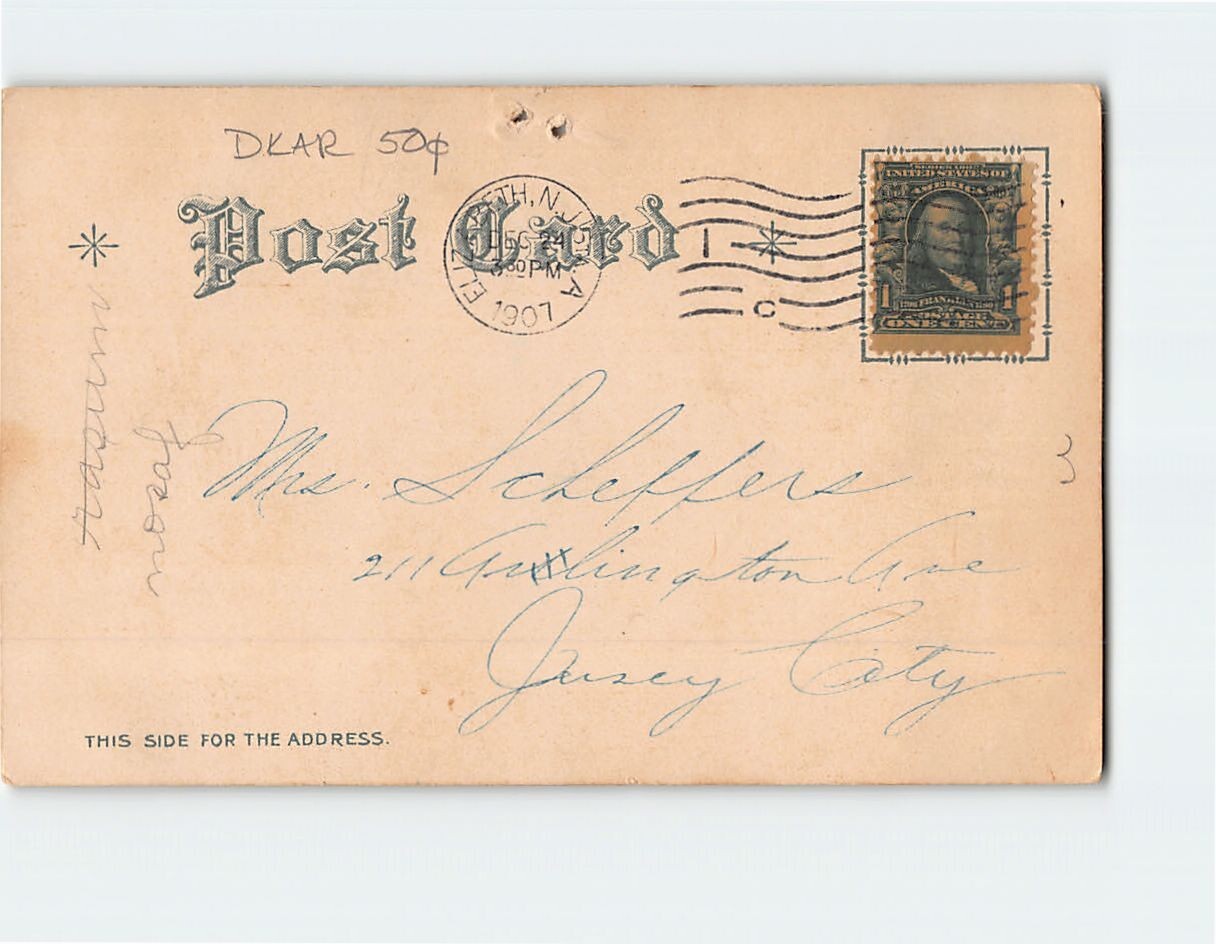 DKAR 50¢
Post Card
ELIZABETH, N.J. STA. A
DEC 24
3 30 PM
1907
1
C
SERIES 1902
UNITED STATES OF
AMERICA
1 FRANKLIN 1
POSTAGE
ONE CENT
Mrs. Scheffers
211 Arlington Ave
Jersey City
3
THIS SIDE FOR THE ADDRESS.